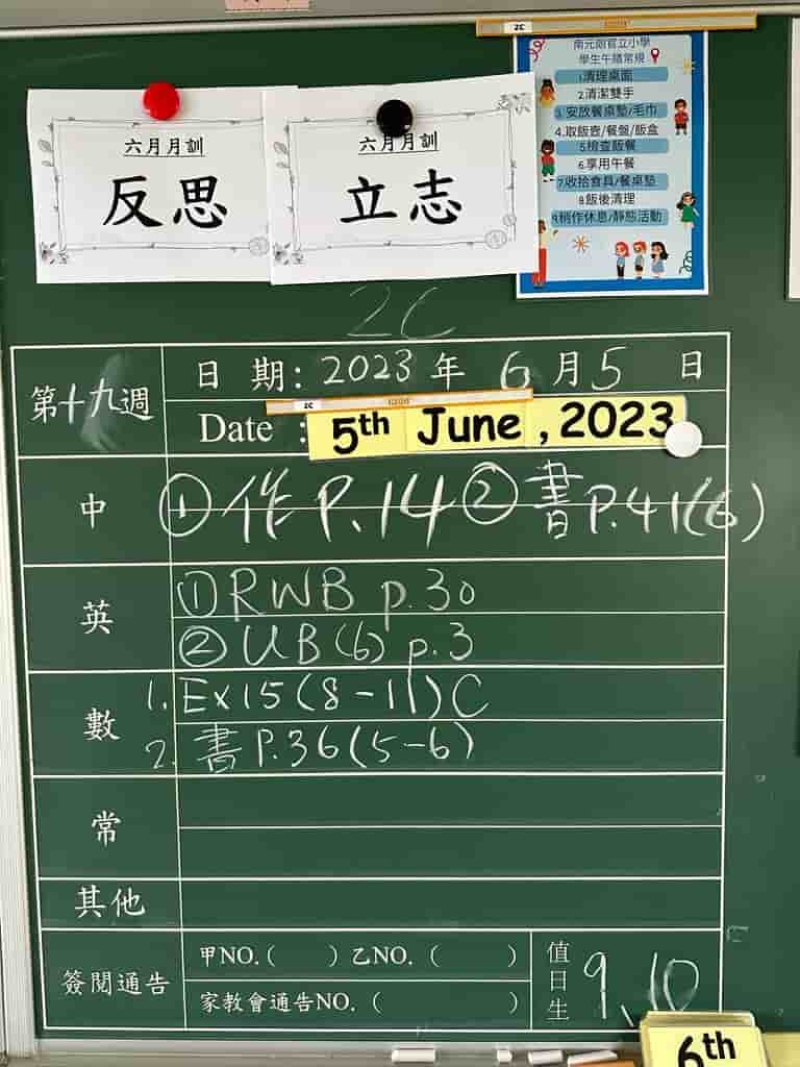 2C
南元朗官立小學
學生午膳常規
1.清理桌面
2.清潔雙手
3.安放餐桌墊/毛巾
4.取飯壺/餐盤/飯盒
5.檢查飯餐
6.享用午餐
7.收拾食具/餐桌墊
8.飯後清理
9.稍作休息/靜態活動
六月月訓
反思
六月月訓
立志
2C
第十九週
日 期: 2023 年 6 月 5 日
2C
Date : 5th June, 2023
中
① 作 P.14 ② 書 P.41(6)
英
① RWB p.30
② UB(6) p.3
數
1. Ex15(8-11)C
2. 書 P.36(5-6)
常
其他
簽閱通告
甲NO.( ) 乙NO. ( )
家教會通告NO. ( )
值日生
9, 10
6th